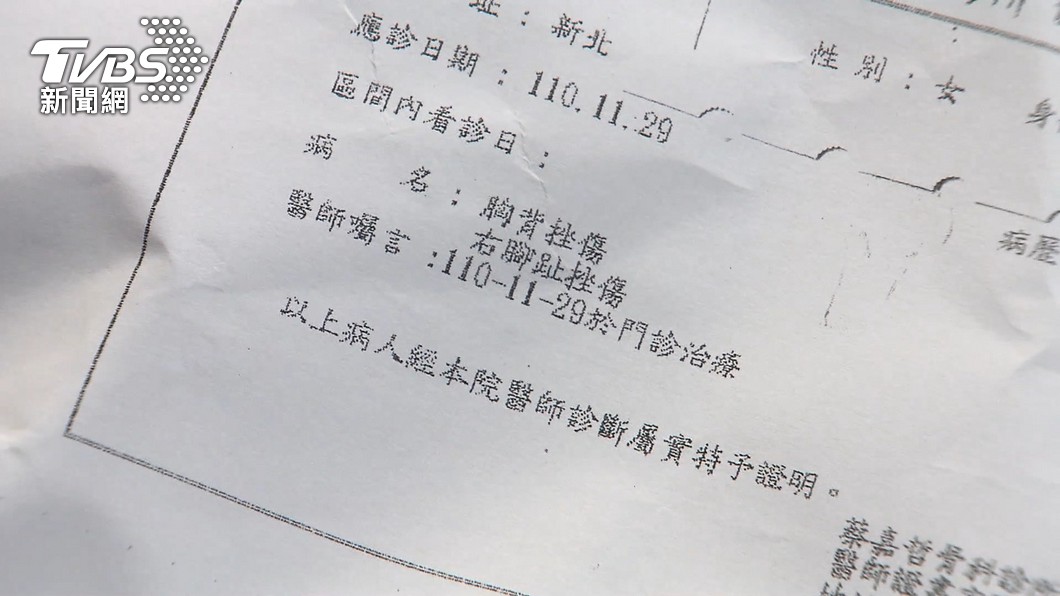 TVBS
新聞網
址：新北
性別：女
應診日期：110.11.29
區間內看診日：
病名：胸背挫傷
右腳趾挫傷
病歷
醫師囑言：110-11-29於門診治療
以上病人經本院醫師診斷屬實特予證明。
蔡嘉哲骨科診
醫師證